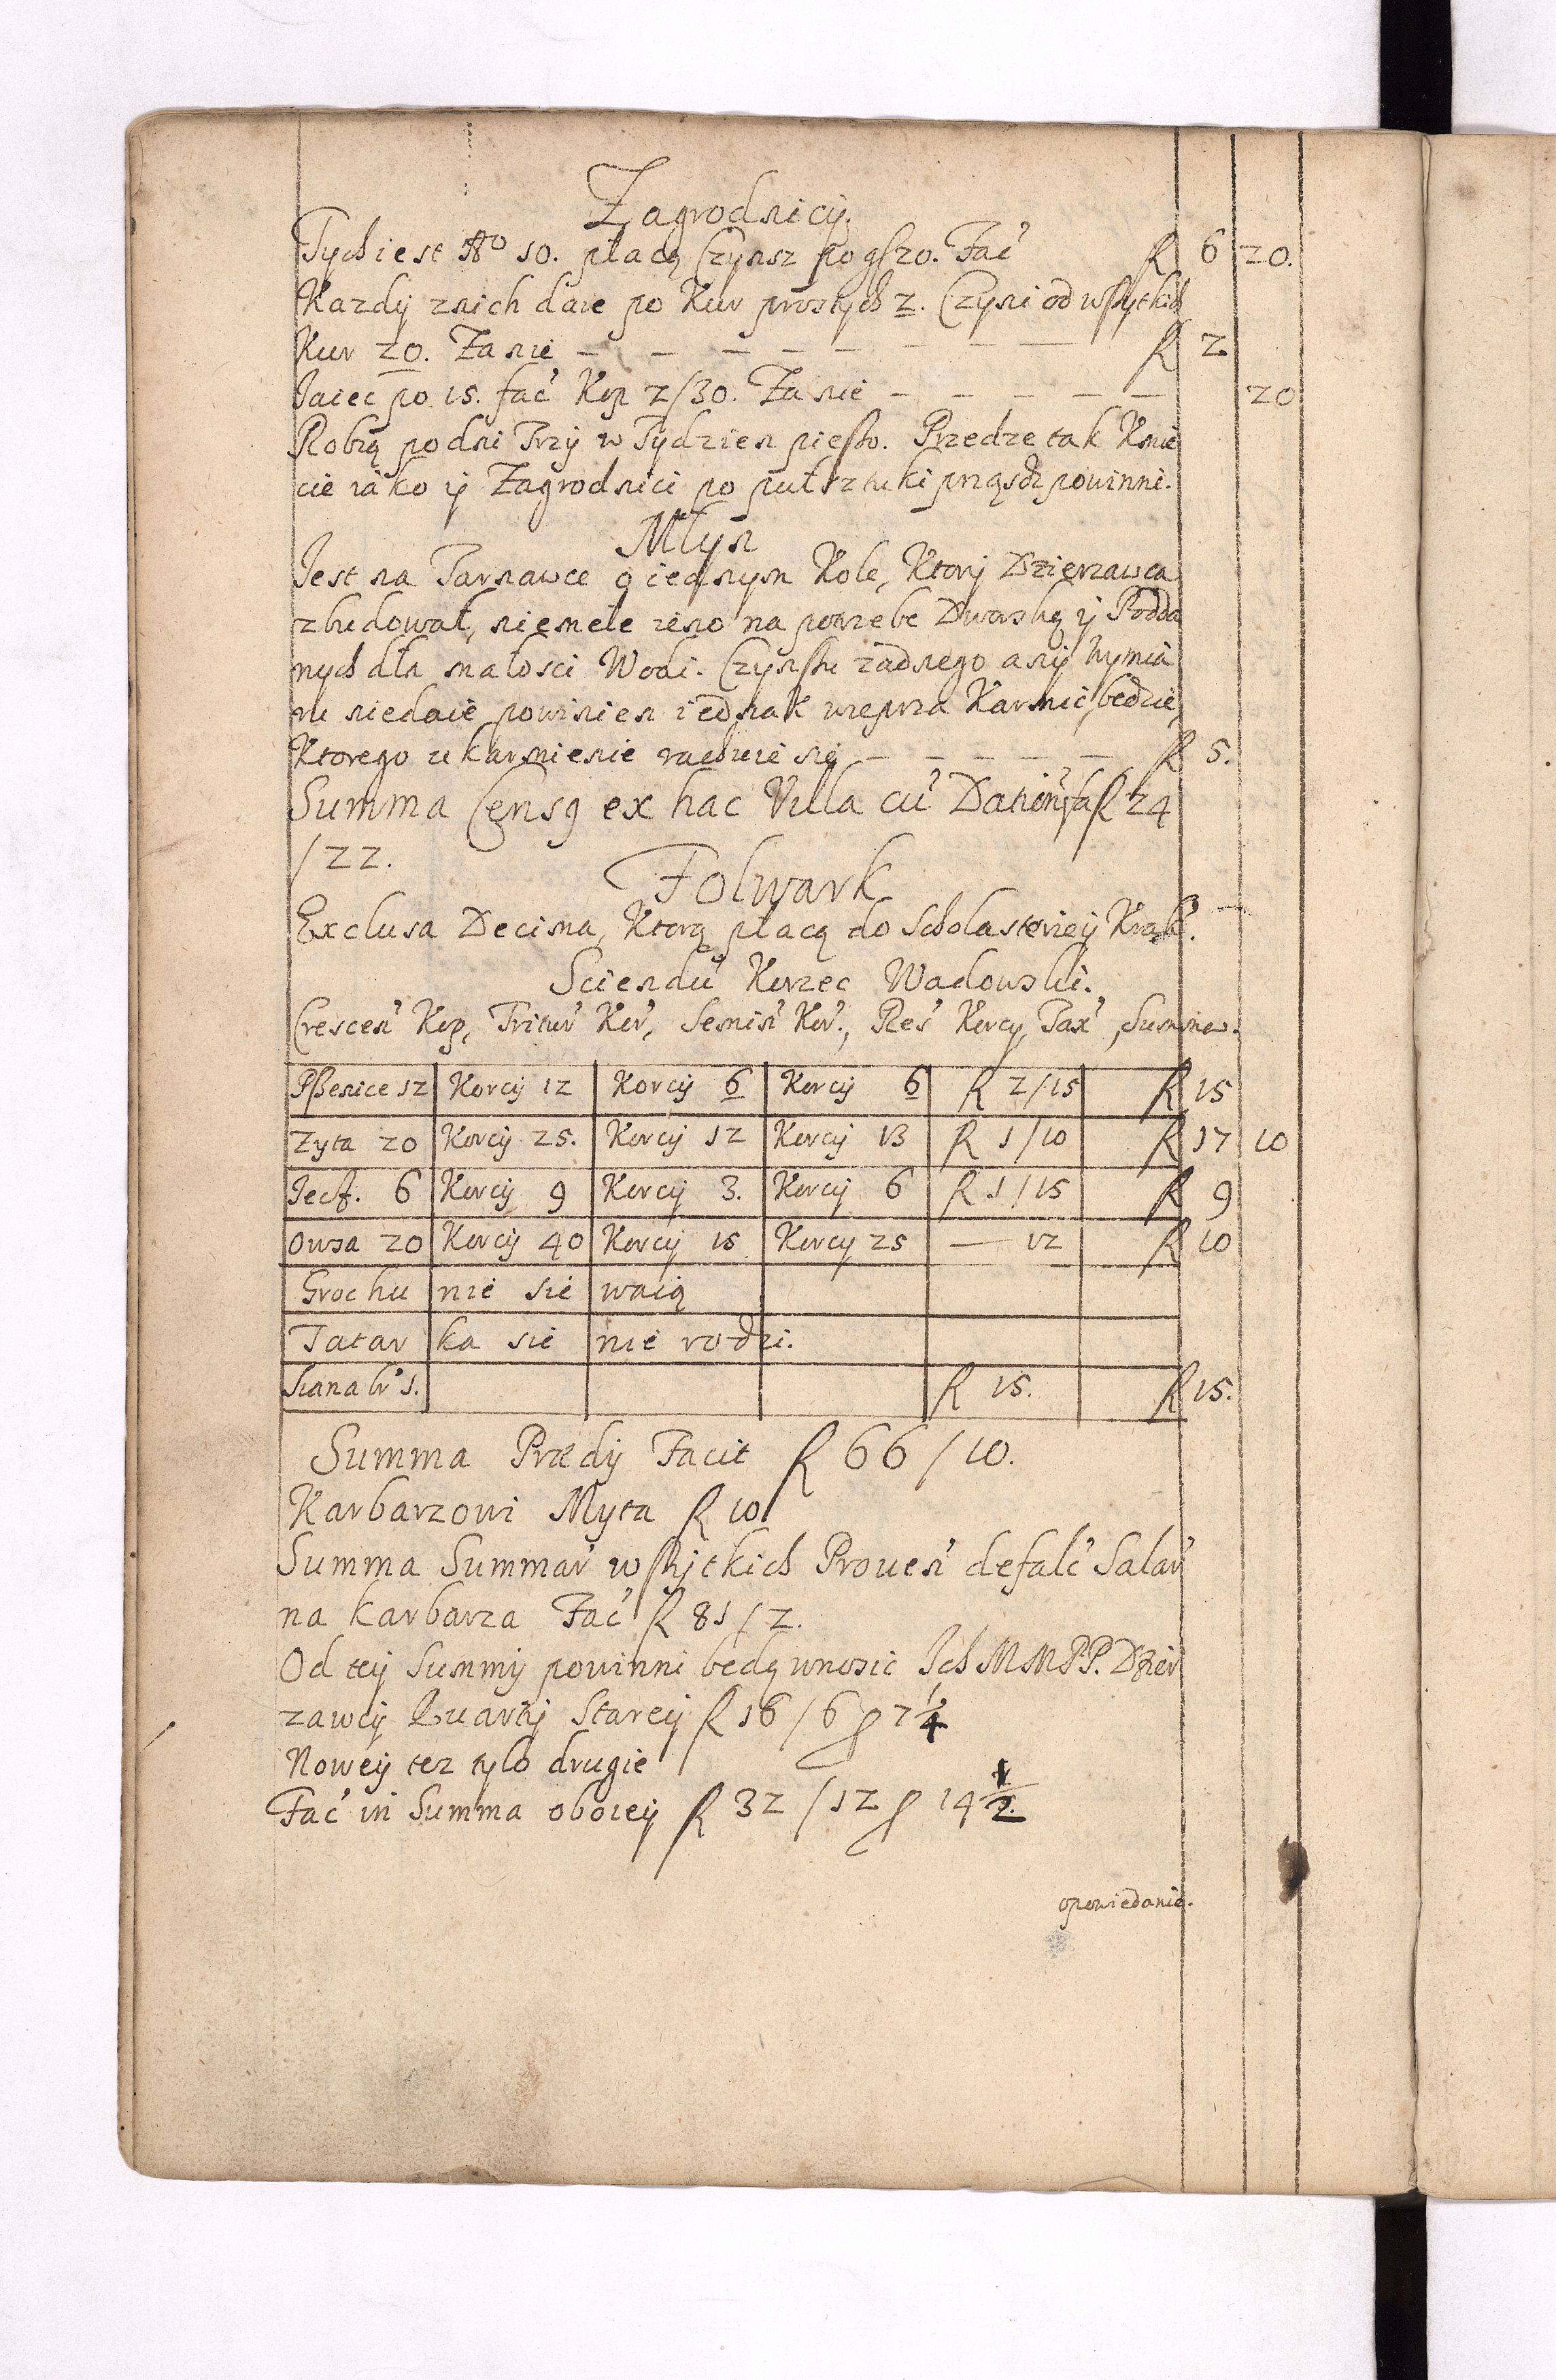 Zagrodnicÿ.
Tych iest No 10. płacą Czynsz po gr 20. Fac̃ R 6 20.
Kazdÿ znich daie po Kur prostych 2. Czyni od wszytkich
Kur 20. Za nie — — — — — — — — R 2
Iaiec po 15. fac̃ Kop 2/30. Za nie — — — — — 20
Robią po dni Trzÿ w Tydzien pieszo. Przedze tak Kmie
cie iako ÿ Zagrodnici po puł sztuki prząśdz powinni.
Młyn
Jest na Tarnawce o iednym Kole, Ktorÿ Dzierzawca
zbudował, niemele ieno na potrzebe Dworską ÿ Podda
nych dla małosci Wodi. Czynszu zadnego anÿ wymia
ru niedaie powinien iednak wieprza Karmic, bedzie,
Ktorego ukarmienie rachuie się — — — — — R 5.
Summa Censq ex hac Villa cu᷃ Dation᷃ fa R 24
/22.
Folwark
Exclusa Decima, Ktorą płacą do Scholasteriey Krak᷃.
Sciendu᷃ Korzec Wadowski.
Crescen᷃ Kop, Tritur᷃ Kor᷃, Semin᷃ Kor᷃., Res᷃ Korcy, Tax᷃, Summa.
Pszenice 12 Korcÿ 12 Korcÿ 6 Korcÿ 6 R 2/15 R 15
Zyta 20 Korcÿ 25. Korcÿ 12 Korcÿ 13 R 1/10 R 17 10
Jecz. 6 Korcÿ 9 Korcÿ 3. Korcÿ 6 R 1/15 R 9
Owsa 20 Korcÿ 40 Korcÿ 15 Korcy 25 — 12 R 10
Grochu nie sie waią
Tatar ka sie nie rodzi.
Siana br᷃ 1. R 15. R 15.
Summa Prædÿ Facit R 66/10.
Karbarzowi Myta R 10
Summa Summar᷃ wszÿtkich Prouen᷃ defalc᷃ Salar᷃
na karbarza Fac᷃ R 81/2.
Od teÿ Summÿ powinni będą wnosic Ich MMPP. Dzier
zawcÿ Quartÿ Stareÿ R 16/6 ꝑ 7 1/4
Noweÿ tez tylo drugie
Fac᷃ in Summa oboieÿ R 32/12 ꝑ 14 1/2
opowiedanie.